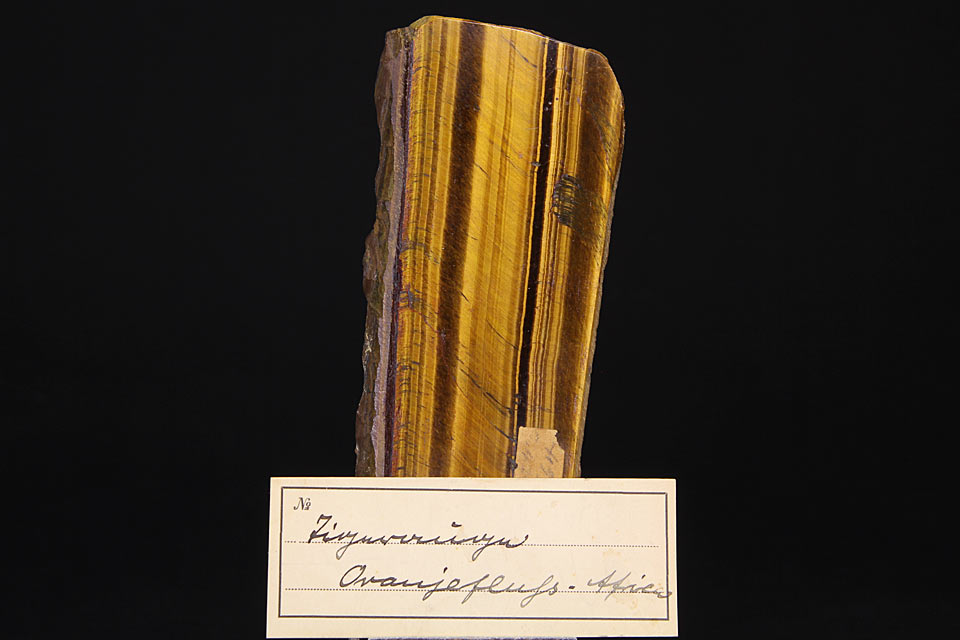 №
Tigerauge
Oranjefluſs - Africa